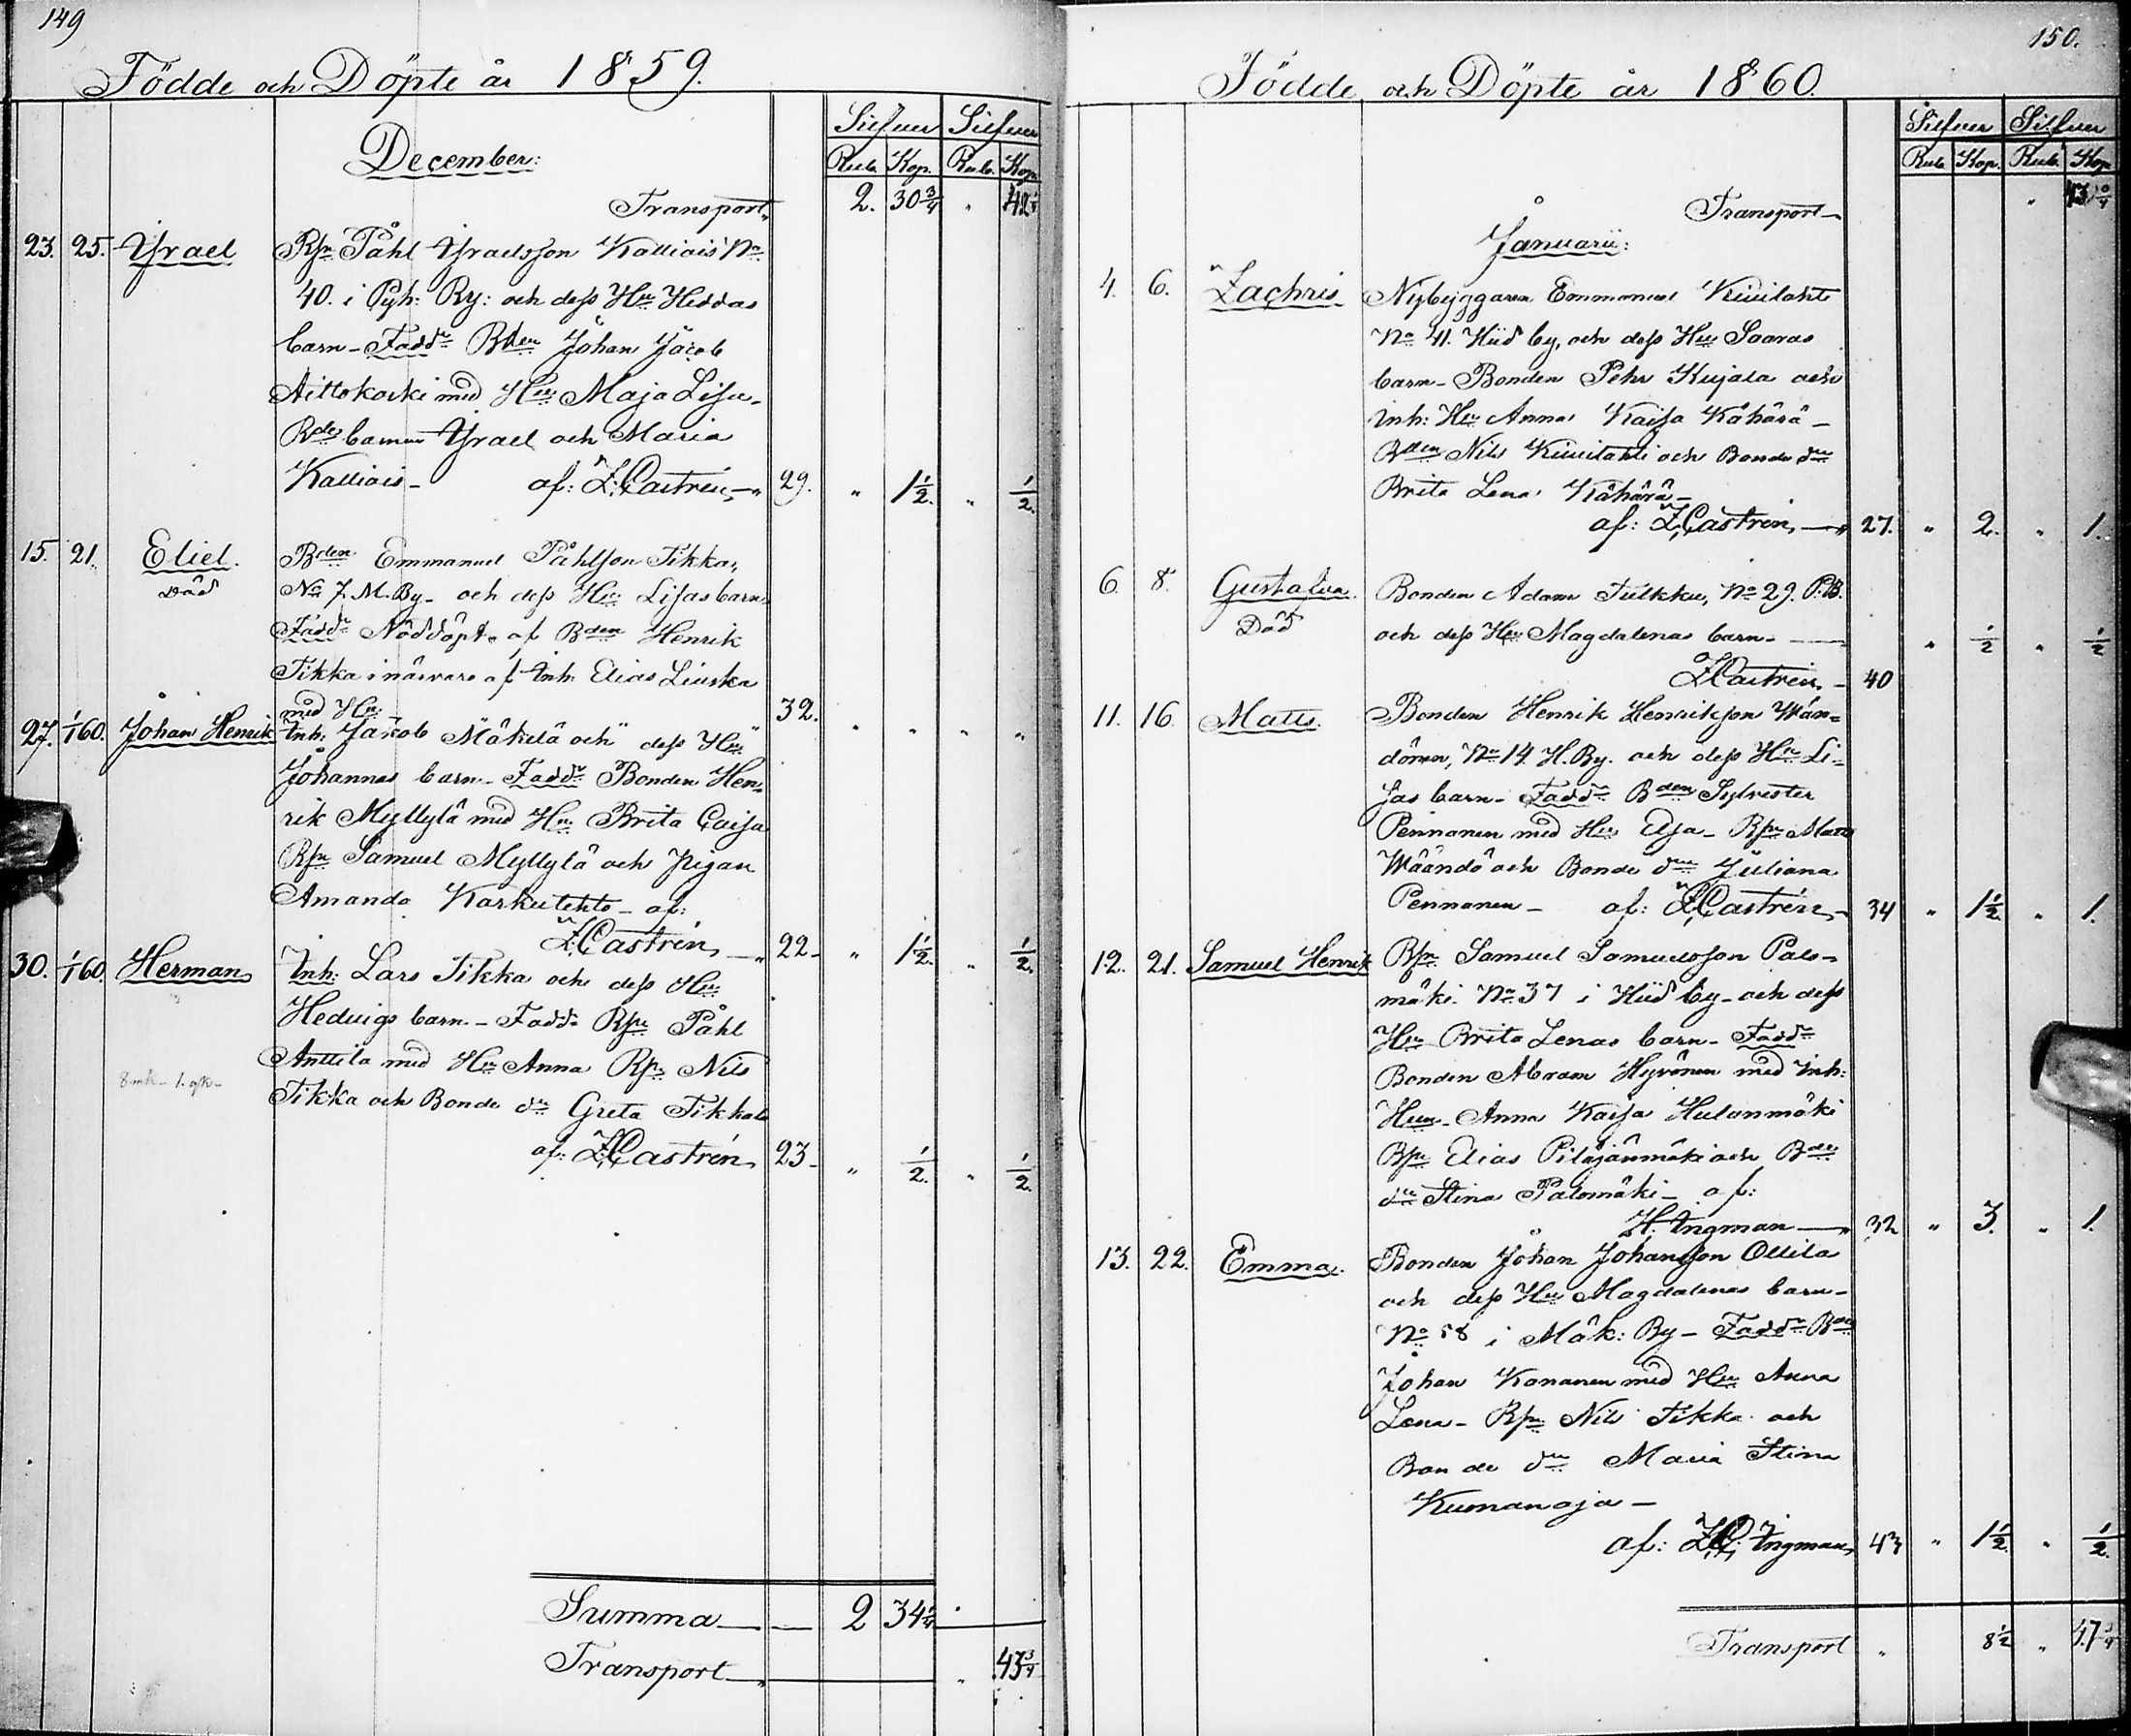 149
Födde och Döpte år 1859.
Silfver Silfver
December:
Rub. Kop. Rub. Kop.
Transport 2. 30 3/4 " 42 1/4
23. 25. Ysrael Rsn Påhl Ysraelsson Kalliais No
40. i Pyh: By: och dess Hu Heddas
barn - Fadd: Bden Johan Jacob
Aittokoski med Hu Maja Lisa -
Bde barnen Ysrael och Maria
Kalliais - af: Z. Castrén, 29. " 1 1/2 " 1/2.
15. 21. Eliel. Bden Emmanuel Påhlsson Tikka,
Död No 7. M. By - och dess Hu Lisas barn -
Fadd: Nöddöpt af Bden Henrik
Tikka i närvaro af Inh. Elias Liuska
med Hu 32. " " " "
27. 1/1 60. Johan Henrik Inh: Jacob Mäkelä och dess Hu
Johannas barn - Fadd: Bonden Hen-
rik Myllylä med Hu Brita Caisa
Rsn Samuel Myllylä och pigan
Amanda Karkulehto - af:
Z. Castrén, 22 - " 1 1/2. " 1/2.
30. 1/1 60. Herman Inh: Lars Tikka och dess Hu
Hedvigs barn - Fadd: Rsn Påhl
Anttila med Hu Anna Rsn Nils
8 mk - 1.
Tikka och Bonde dr Greta Tikkala
af: Z. Castrén 23 - " 1/2. " 1/2.
Summa 2 34 1/4
Transport " 43 3/4
150.
Födde och Döpte år 1860.
Silfver Silfver
Rub. Kop. Rub. Kop.
Transport - " 43 3/4
Januarii:
4. 6. Zachris Nybyggaren Emmanuel Kivilahti
No 41. Hiid by, och dess Hu Saaras
barn - Bonden Pehr Kujala och
Inh: Hu Anna Kaisa Kähärä -
Bden Nils Kivilahti och Bonde dr
Brita Lena Kähärä -
af: Z. Castrén, 27. " 2. " 1.
6. 8. Gustafva. Bonden Adam Tulkku, No 29. P.B.
Död och dess Hu Magdalenas barn - " 1/2 " 1/2
Z. Castrén. - 40
11. 16. Matts. Bonden Henrik Henriksson Wän-
dönen, No 14. H. By. och dess Hu Li-
sas barn - Fadd: Bden Sylvester
Pennanen med Hu Elsa - Rsn Matts
Wäändö och Bonde dr Juliana
Pennanen - af: Z. Castrén, - 34 " 1 1/2. " 1.
12. 21. Samuel Henrik Rsn Samuel Samuelsson Palo-
mäki No 37 i Hiid by - och dess
Hu Brita Lenas barn - Fadd:
Bonden Abram Hyvönen med Inh:
Hun - Anna Kaisa Hulanmäki
Rsn Elias Pilajänmäki och Bde
dr Stina Palomäki - af:
H. Ingman 32 " 3. " 1.
13. 22. Emma. Bonden Johan Johansson Ollila
och dess Hu Magdalenas barn -
No 58 i Mäk: By - Fadd: Bden
Johan Kananen med Hu Anna
Lena - Rsn Nils Tikka och
Bonde dr Maria Stina
Kumanoja -
af: Ingman, 43 " 1 1/2. " 1/2.
Transport " 8 1/2 " 47 3/4